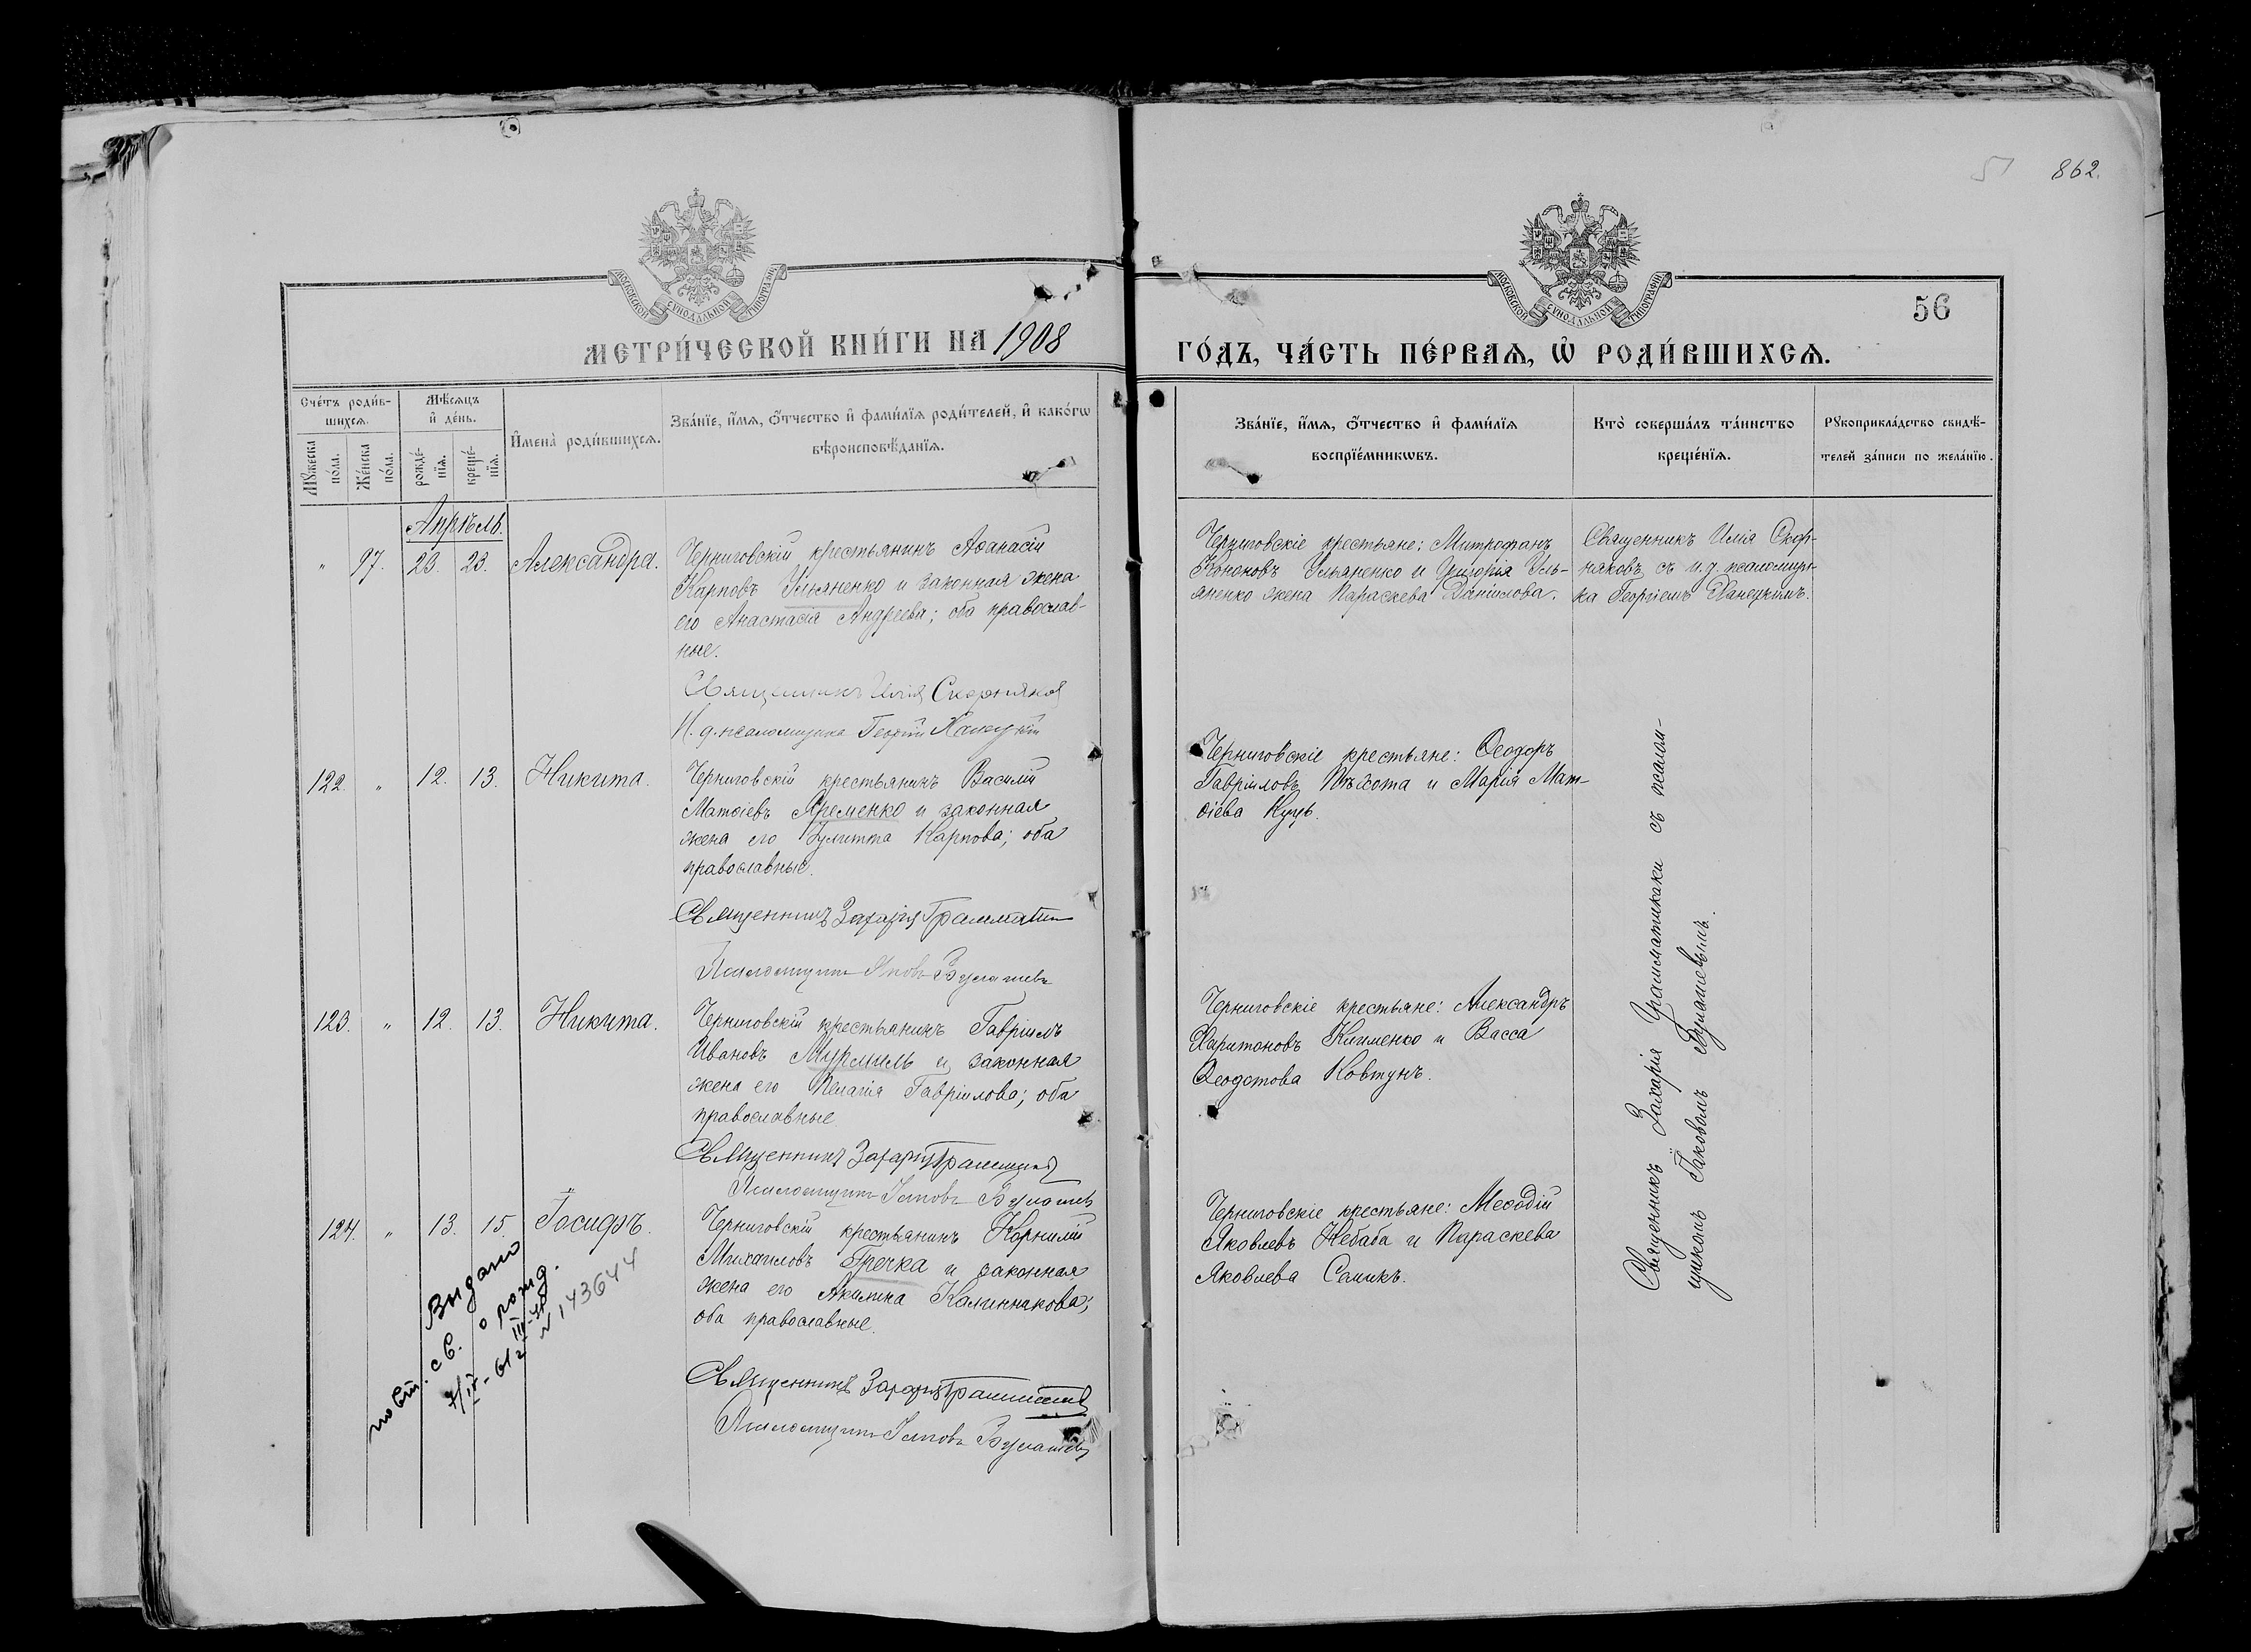 51 862.
МОСКОВСКОЙ СУНОДАЛЬНОЙ ТИПОГРАФІИ
МОСКОВСКОЙ СУНОДАЛЬНОЙ ТИПОГРАФІИ
56
МЕТРИ́ЧЕСКОЙ КНИ́ГИ НА 1908
ГО́ДЪ, ЧА́СТЬ ПЕ́РВАѦ, Ѡ РОДИ́ВШИХСѦ.
Сче́тъ роди́в-
шихсѧ.
Мꙋ́жеска по́ла.
Же́нска по́ла.
Мѣ́сѧцъ
и҆ де́нь.
рожде́-
нїѧ.
креще́-
нїѧ.
И҆мена̀ роди́вшихсѧ.
Зва́нїе, и҆́мѧ, ѻ҆́тчество и҆ фами́лїѧ роди́телей, и҆ како́гѡ
вѣроисповѣ́данїѧ.
Зва́нїе, и҆́мѧ, ѻ҆́тчество и҆ фами́лїѧ
воспрїе́мникѡвъ.
Кто̀ соверша́лъ та́инство
креще́нїѧ.
Рꙋкоприкла́дство свидѣ́-
телей за́писи по жела́нїю.
Апрѣль.
„ 97. 23. 23. Александра.
Черниговскій крестьянинъ Аѳанасій
Карповъ Ульяненко и законная жена
его Анастасія Андреева; оба православ-
ные.
Священникъ Илія Скорняковъ
И. д. псаломщика Георгій Ханецкій
Черниговскіе крестьяне: Митрофанъ
Кононовъ Ульяненко и Григорія Уль-
яненко жена Параскева Даніилова.
Священникъ Илія Скор-
няковъ съ и. д. псаломщи-
ка Георгіемъ Ханецкимъ.
122. „ 12. 13. Никита.
Черниговскій крестьянинъ Василій
Матѳіевъ Яременко и законная
жена его Іулитта Карпова; оба
православные.
Священникъ Захарія Грамматик
Псаломщикъ Яковъ Булашевъ
Черниговскіе крестьяне: Ѳеодоръ
Гавріиловъ и Марія Мат-
ѳіева Куць.
123. „ 12. 13. Никита.
Черниговскій крестьянинъ Гавріилъ
Ивановъ Мурмиль и законная
жена его Пелагія Гавріилова; оба
православные.
Священникъ Захарія Грамматик
Псаломщикъ Іаковъ Булашевъ
Черниговскіе крестьяне: Александръ
Харитоновъ Клименко и Васса
Ѳеодотова Ковтунъ.
124. „ 13. 15. Іосифъ.
Черниговскій крестьянинъ Корнилій
Михаиловъ Гречка и законная
жена его Акилина Калинникова;
оба православные.
Священникъ Захарія Грамматик
Псаломщикъ Іаковъ Булашевъ
Черниговскіе крестьяне: Меѳодій
Яковлевъ Небаба и Параскева
Яковлева Самикъ.
Священникъ Захарія Грамматикаки съ псалом-
щикомъ Іаковомъ Булашевымъ.
Выдано
повт. св. о рожд.
N 143644